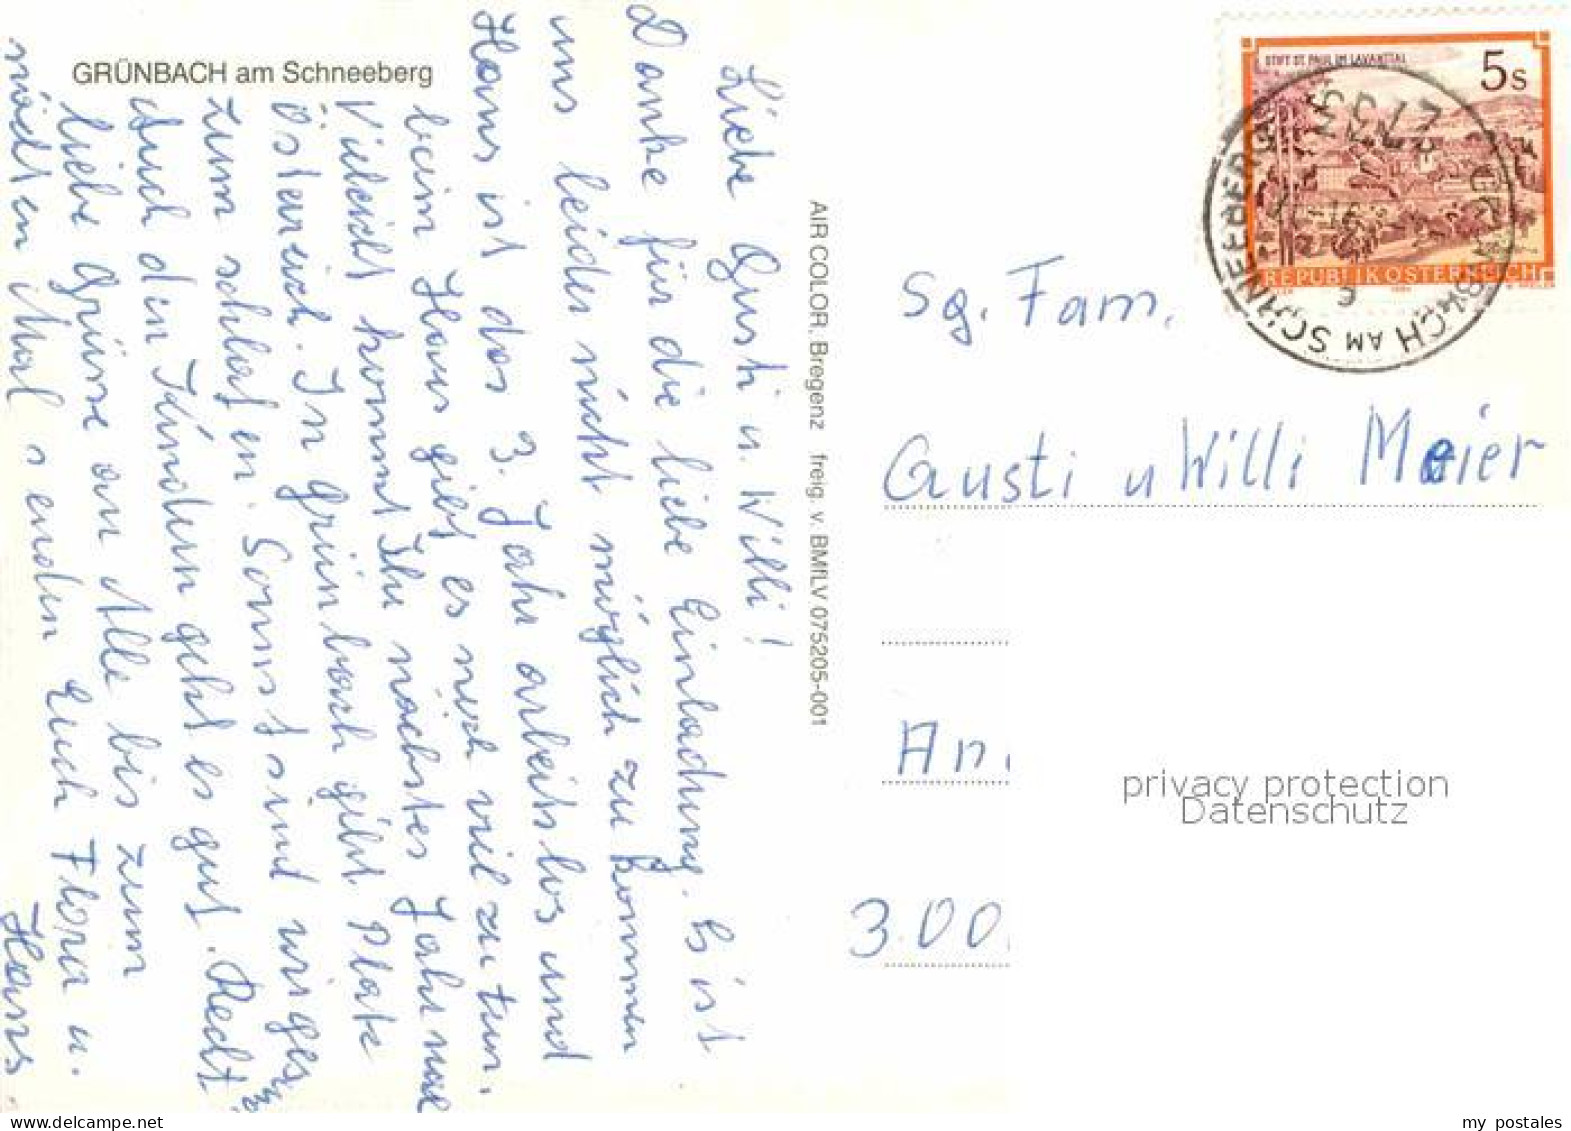 GRÜNBACH am Schneeberg
Liebe Gusti u. Willi!
Danke für die liebe Einladung. Es ist
uns leider nicht möglich zu kommen
Hans ist das 3. Jahr arbeitslos und
beim Haus gibt es noch viel zu tun.
Vieleicht kommt Ihr nächstes Jahr nach
Östereich. In Grünbach gibt Platz
zum schlafen. Sonnst sind wir ges.
Auch den Kindern geht es gut. Recht
liebe Grüße an Alle bis zum
nächsten Mal senden Euch Flora u.
Hans
AIR COLOR, Bregenz freig. v. BMfLV 075205-001
STIFT ST. PAUL IM LAVANTTAL
5 S
REPUBLIK ÖSTERREICH
2733
AM SCHNEEBERG
Sg. Fam.
Gusti u Willi Meier
An
300
privacy protection
Datenschutz
my_postales_de.delcampe.net
my_postales